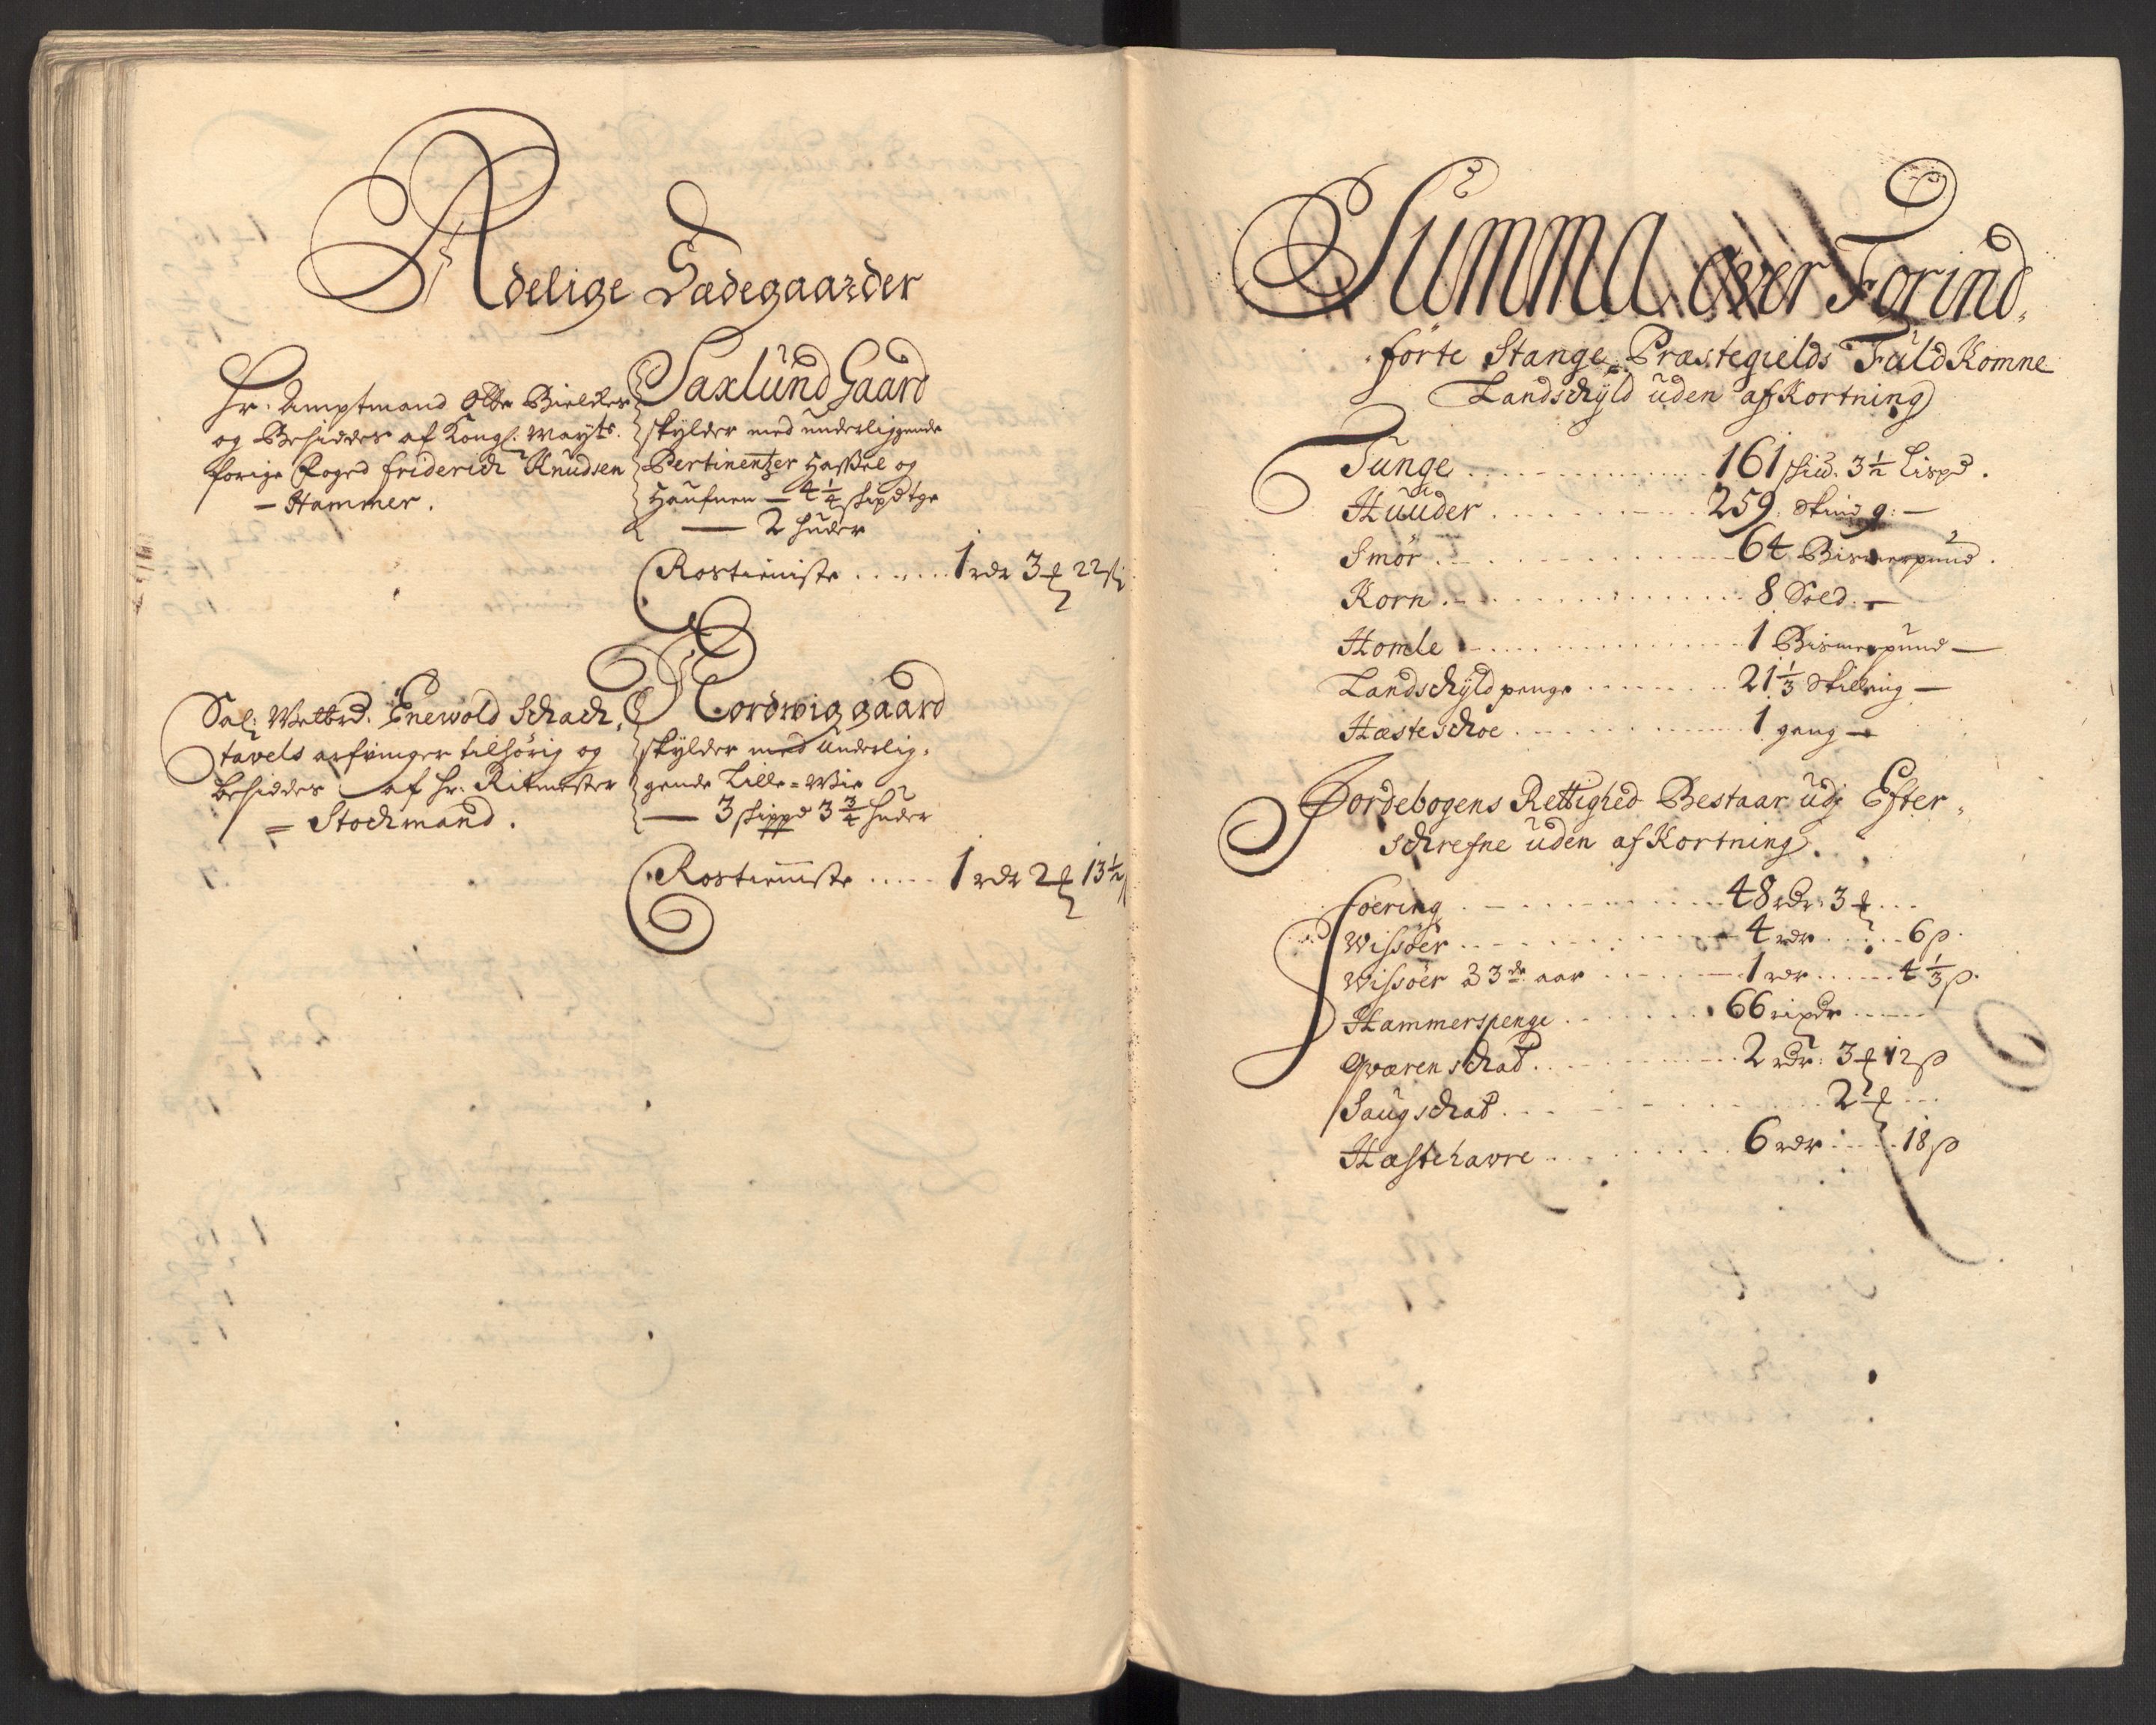 Adelige Sædegaarder
Hr. Amptmand Otte Bielkes
og Besiddes af Kongl: Mayts.
forige Foged Friderich Knudsen
- Hammer.
Saxlund Gaard
skylder med underliggende
Pertinentzer Hassel og
Haufnen — 4 1/4 skipd tge
— 2 huder
Rostieniste ....... 1 rdr 3 ₰ 22 s
Sal: Welbrd. Enewold Schach,
Stavels arfvinger tilhörig og
besiddes af Hr. Ritmester
= Stockmand.
Nordwiggaard
skylder med Underlig,
gende Lille = Wie
— 3 skippd 3 3/4 huder
Rostieniste ..... 1 rdr 2 ₰ 13 1/2
Summa over Forind,
förte Stange Præstegields Fuldkomne
Landschyld uden afkortning
Tunge ............ 161 skid. 3 1/2 Lispd.
Huuder .......... 259. Skind 9: —
Smör ............ 64 Bismerpund.
Korn ............ 8 Sold: —
Homle ............ 1 Bismerpund —
Landschyld penge ........ 21 1/3 Skilling —
Hæsteschoe ............ 1 gang —
Jordebogens Rettighed Bestaar udj Efter,
schrefne uden afkortning.
Foering ............ 48 rdr. 3 ₰ ...
Wissöer ............ 4 rdr ...... 6 s.
Wissöer 3 3de aar ....... 1 rdr ..... 4 1/3 s.
Hammerspenge ....... 66 ripdr .....
Qværn schat ......... 2 rdr: 3 ₰ 12 s
Saugschat ............ 2 ₰ ...
Hæstehavre ......... 6 rdr ..... 18 s